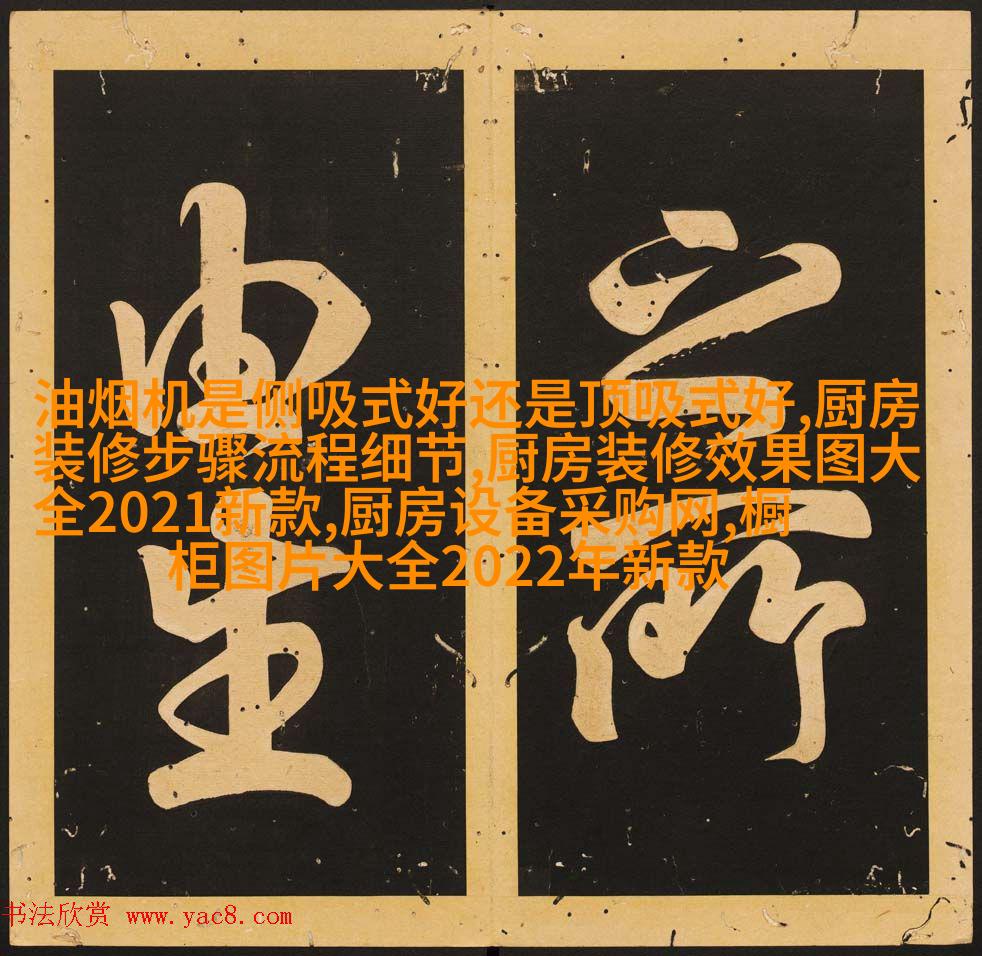 之所
由生
油烟机是侧吸式好还是顶吸式好,厨房
装修步骤流程细节,厨房装修效果图大
全2021新款,厨房设备采购网,橱
柜图片大全2022年新款
书法欣赏 www.yac8.com